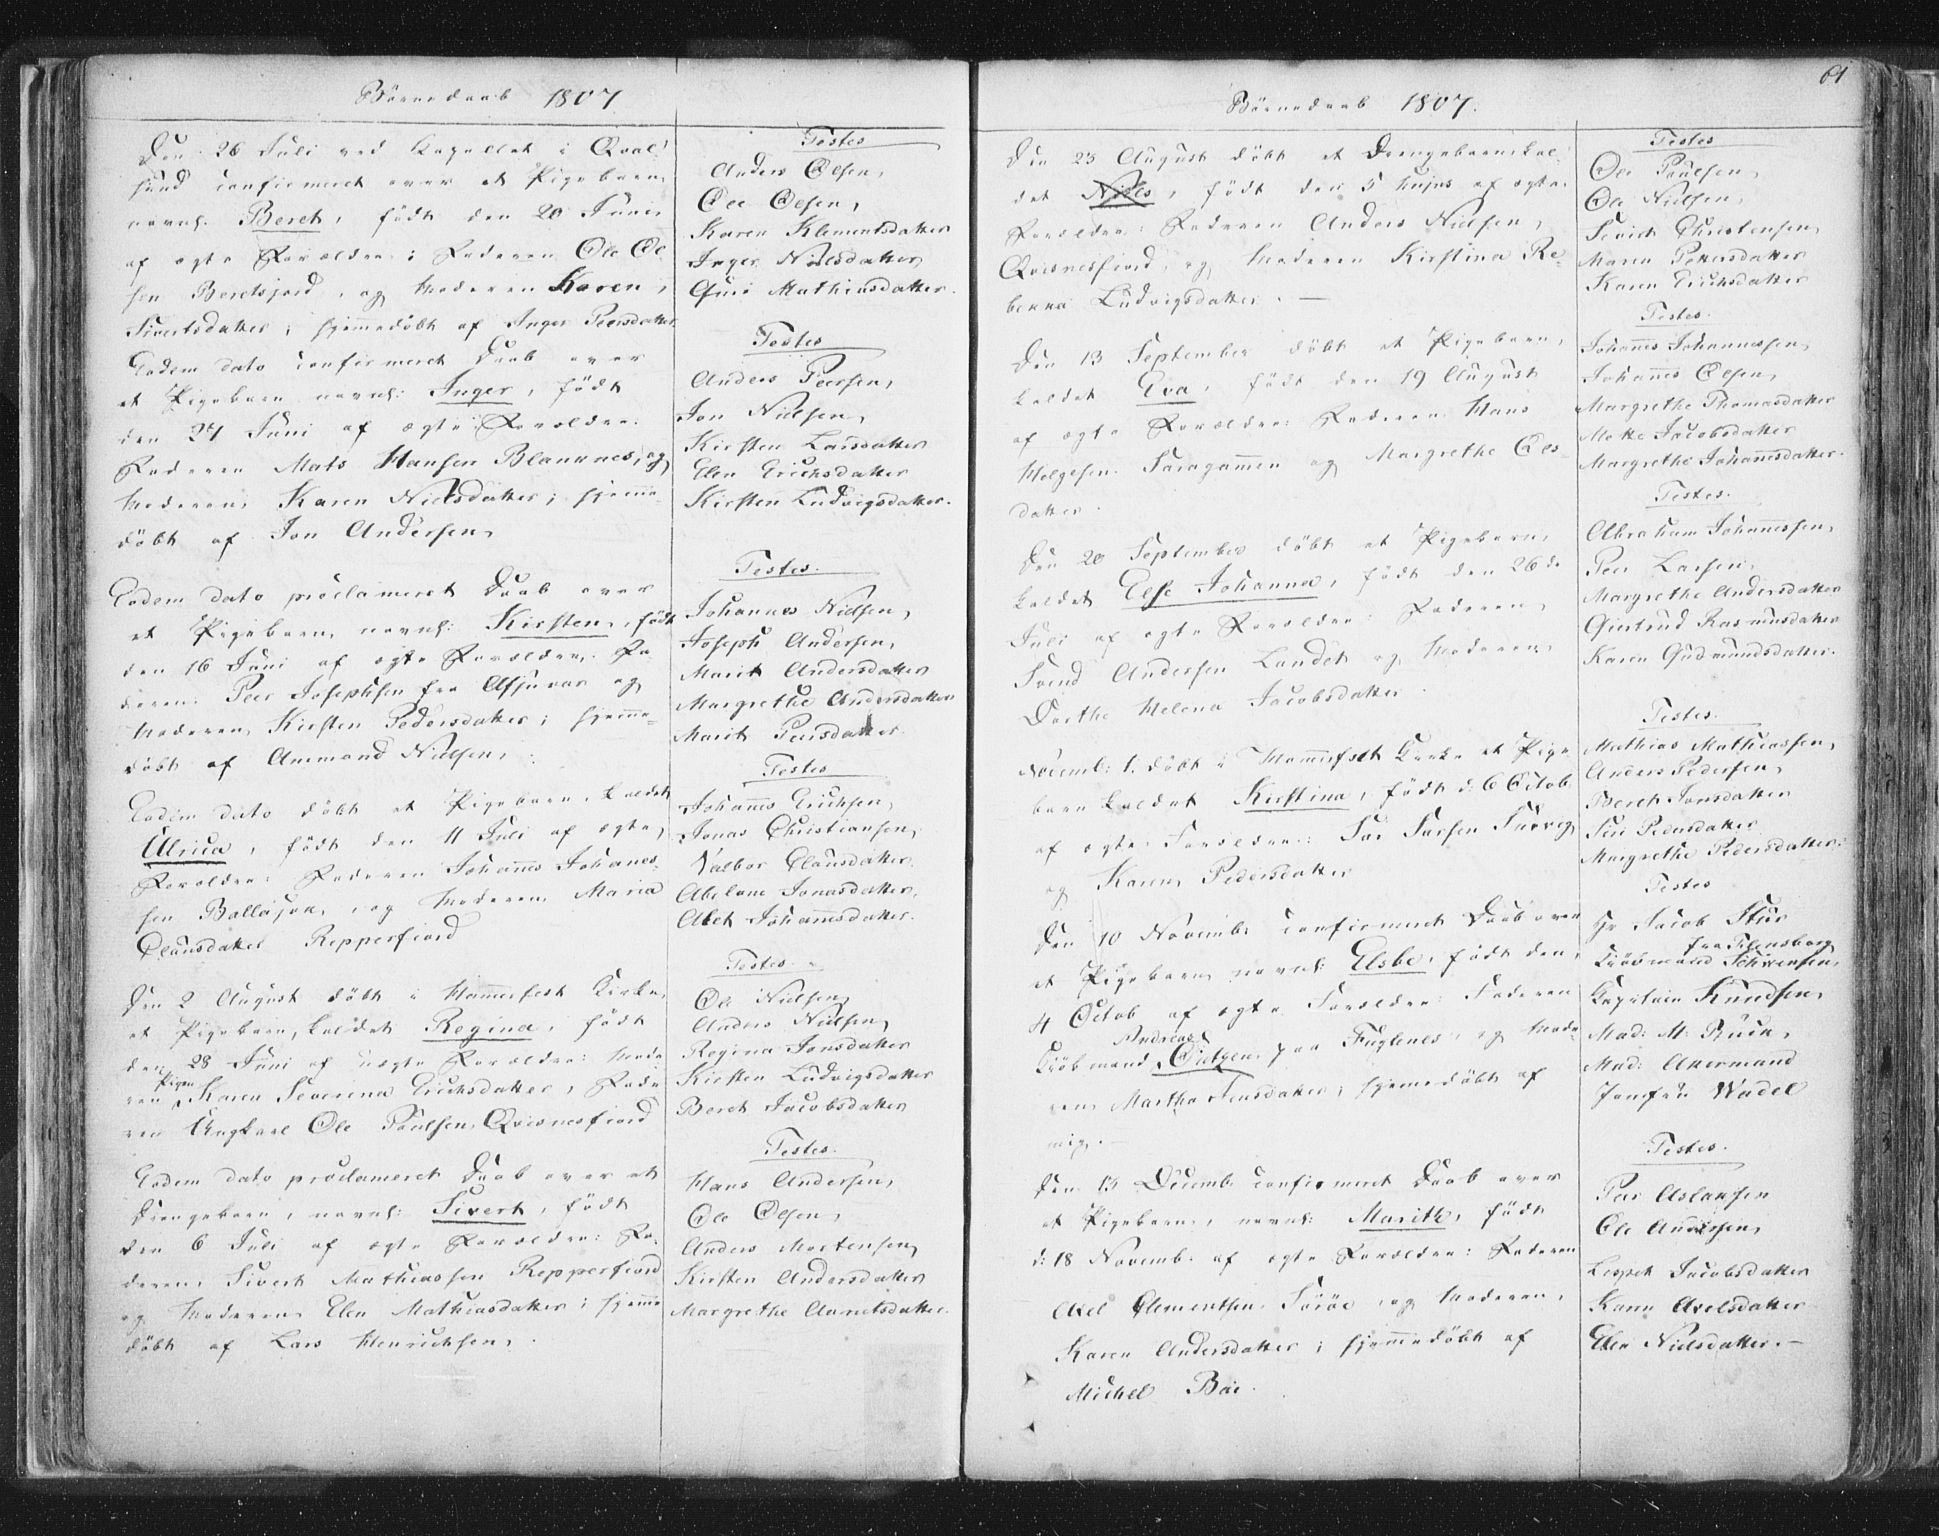 Børnedaab 1807
Den 26 Juli ved Capellet i Qval-
sund confirmeret over et Pigebarn
navnl: Beret, født den 20 Junii
af ægte Forældre: Faderen Ole Ol-
sen Beretsjord, og Moderen Karen
Sivertsdatter; hjemmedøbt af Inger Peersdatter
Eodem dato confirmeret Daab over
et Pigebarn navnl: Inger, født
den 24 Juni af ægte Forældre:
Faderen Mats Hansen Blannes, og
Moderen Karen Nielsdatter; hjemme-
døbt af Jon Andersen
Eodem dato proclameret Daab over
et Pigebarn, navnl: Kirsten, født
den 16 Juni af ægte Forældre: Fa-
deren Peer Josephsen fra Afjuvar og
Moderen Kirsten Pedersdatter; hjemme-
døbt af Ammond Nielsen.
Eodem dato døbt et Pigebarn, kaldet
Ulrica, født den 11 Juli af ægte
Forældre: Faderen Johannes Johanes-
sen Ballasjon, og Moderen Maria
Clausdatter Repperfiord
Den 2 August døbt i Hammerfest Kirke
et Pigebarn, kaldet Regina, født
den 28 Juni af uægte Forældre: Mode-
ren Pigen Karen Severina Erichsdatter, Fade-
ren Ungkarl Ole Paulsen, Qvisnesfiord
Eodem dato proclameret Daab over et
Drengebarn, navnl: Sivert, født
den 6 Juli af ægte Forældre: Fa-
deren Sivert Mathiassen Repperfiord
og Moderen Elen Mathiasdatter; hjemme-
døbt af Lars Henrichsen.
Testes
Anders Olsen,
Ole Olsen,
Karen Klementsdatter
Inger Nielsdatter
Guri Mathiasdatter.
Testes
Anders Peersen,
Jon Nielsen,
Kirsten Larsdatter
Elen Erichsdatter
Kirsten Ludvigsdatter.
Testes.
Johannes Nielsen,
Joseph Andersen,
Marit Andersdatter
Margrethe Andersdatter
Marit Peersdatter.
Testes
Johannes Erichsen,
Jonas Christiansen,
Valbor Clausdatter
Abelone Jonasdatter,
Alet Johannesdatter.
Testes.
Ole Nielsen,
Anders Nielsen,
Regina Jonsdatter
Kirsten Ludvigsdatter
Beret Jacobsdatter
Testes.
Hans Andersen,
Ole Olsen,
Anders Mortensen,
Kirsten Andersdatter
Margrethe Anretsdatter.
61
Børnedaab 1807.
Den 23 August døbt et Drengebarn kal-
det Niels, født den 5 hujus af ægte
Forældre: Faderen Anders Nielsen,
Qvisnesfiord, og Moderen Kirstina Re-
bekka Ludvigsdatter. —
Den 13 September døbt et Pigebarn,
kaldet Eva, født den 19 August
af ægte Forældre: Faderen Hans
Helgesen Saragammen og Margrethe Ols-
datter.
Den 20 September døbt et Pigebarn,
kaldet Else Johanna, født den 26de
Juli af ægte Forældre: Faderen
Svend Andersen Landet og Moderen
Dorthe Helena Jacobsdatter.
Novemb: 1. døbt i Hammerfest Kirke et Pige-
barn kaldet Kirstina, født d: 6 Octob.
af ægte Forældre: Far Sarsen Surveg
og Karen Pedersdatter
Den 10 Novemb: confirmeret Daab over
et Pigebarn navnl: Elsbe, født den
4 Octob af ægte Forældre: Faderen
Kiøbmand Andreas Oietgen paa Fuglenes, og Mode-
ren Martha Jensdatter, hjemedøbt af
mig. —
Den 13 Decemb: confirmeret Daab over
et Pigebarn, navnl: Marith, født
d: 18 Novemb: af ægte Forældre: Faderen
Axel Clementsen Sørøe, og Moderen,
Karen Andersdatter; hjemmedøbt af
Michel Boe.
Testes
Ole Paulsen,
Ole Nielsen,
Sevirt Christensen,
Maren Pettersdatter
Karen Erichsdatter
Testes.
Johannes Johannessen,
Johannes Olsen,
Margrethe Thomasdatter
Mette Jacobsdatter
Margrethe Johannesdatter.
Testes.
Abraham Johannessen,
Peer Larsen,
Margrethe Andersdatter
Giertrud Rasmusdatter
Karen Gudmundsdatter.
Testes.
Mathias Mathiassen,
Anders Pedersen,
Beret Jonsdatter
Siri Pedersdatter
Margrethe Pedersdatter.
Testes
Hr Jacob Stur
Kiøbmand Schwensen, fra Flensborg
Capitain Knudsen,
Mad: M: Buck,
Mad: Akermand
Jomfru Wadel
Testes.
Peer Aslaksen
Ole Andersen,
Lispet Jacobsdatter
Karen Axelsdatter
Elen Nielsdatter. —